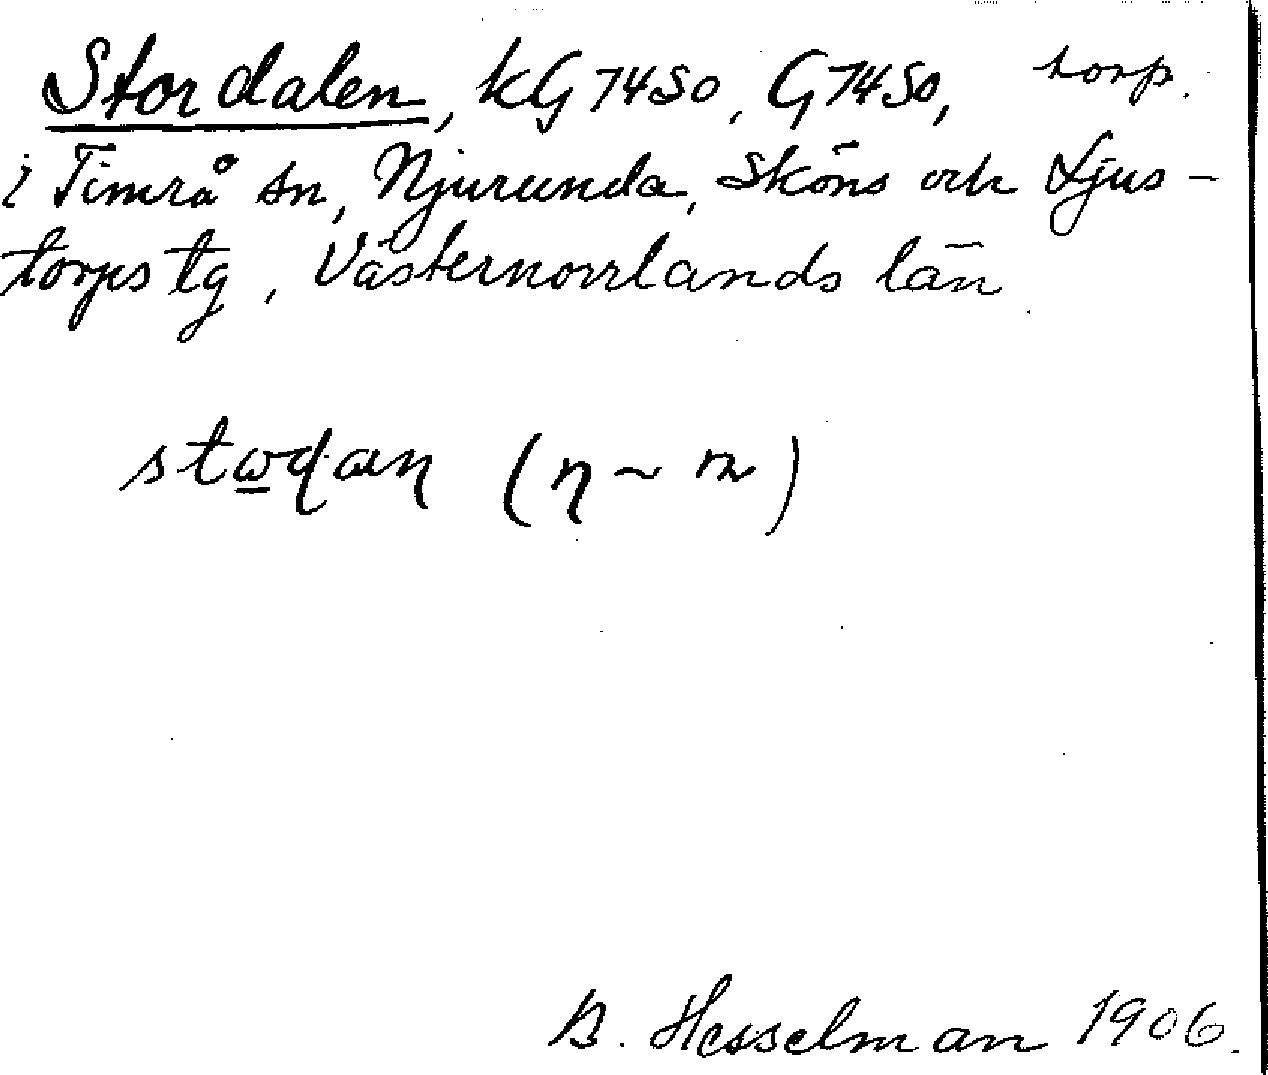 Stordalen, kG 7450, G 7450, torp.
i Timrå sn, Njurunda, Sköns och Ljus-
torps tg, Västernorrlands län
(η ~ n)
B. Hesselman 1906.